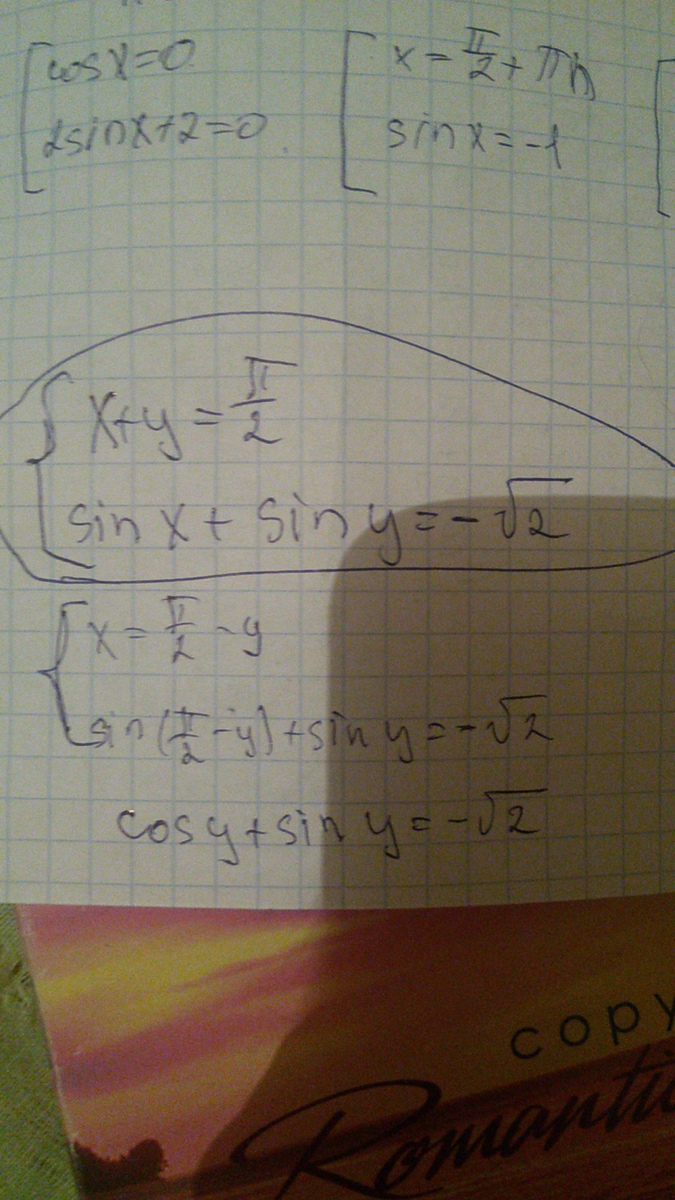 cosx=0 x = π/2 + πn
2sinx+2=0. sin x = -1
x+y = π/2
sin x + sin y = -√2
x = π/2 - y
sin(π/2 - y) + sin y = -√2
cos y + sin y = -√2
COPY
Romantic